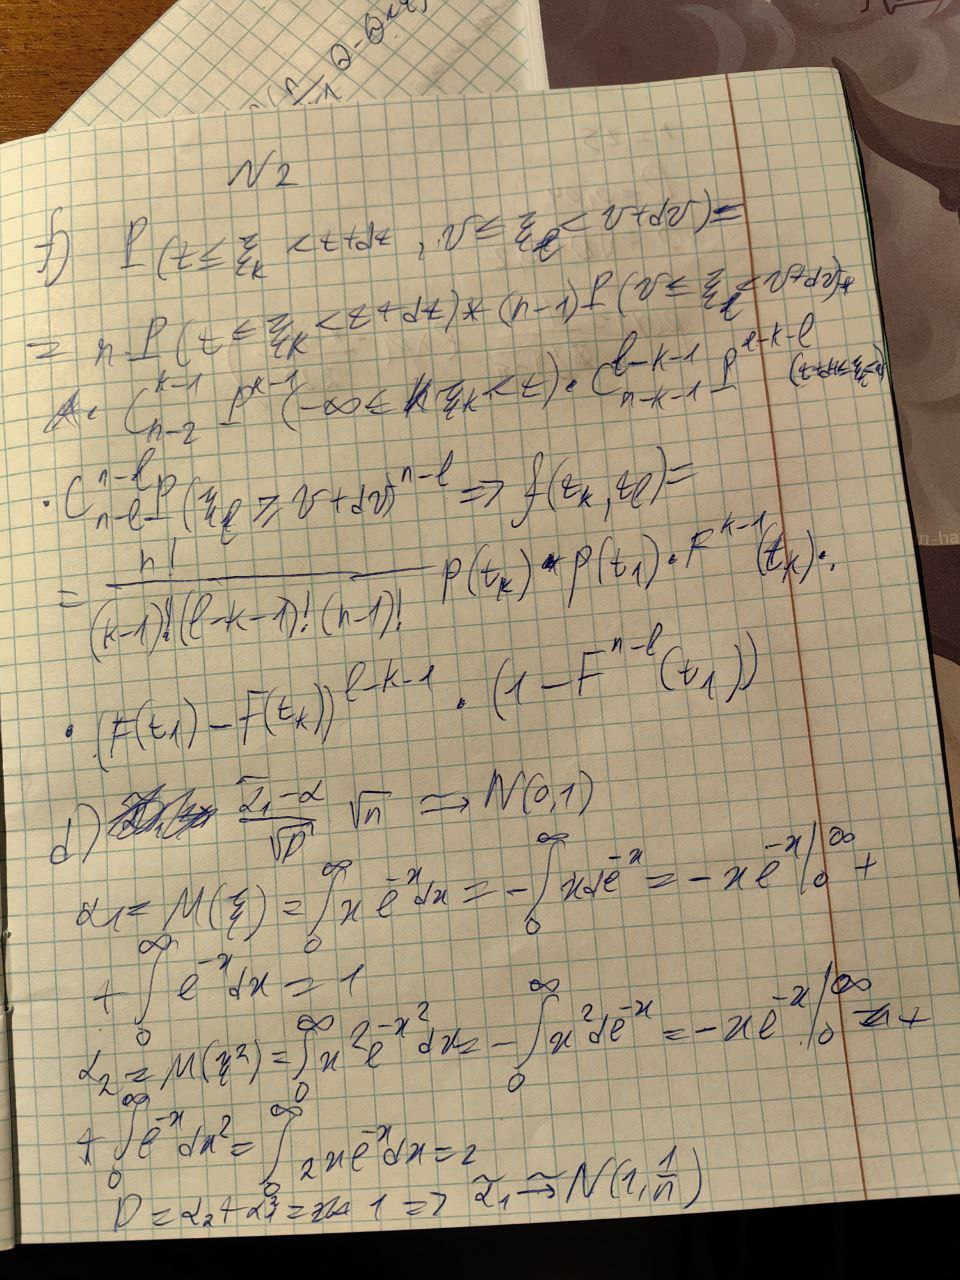 N2
f) P(z ≤ ξ_k < z+dz, v ≤ ξ_l < v+dv) =
= n P(z ≤ ξ_k < z+dz)*(n-1) P(v ≤ ξ_l < v+dv)*
· C_{n-2}^{k-1} P^{k-1}(-∞ ≤ ξ_k < z) · C_{n-k-1}^{l-k-1} P^{l-k-l}
· C_{n-l}^{n-l} P(ξ_l ≥ v+dv)^{n-l} => f(z_k, z_l) =
= n! / ((k-1)!(l-k-1)!(n-1)!) p(t_k) * p(t_1) · F^{k-1}(t_k) ·
· (F(t_1) - F(t_k))^{l-k-1} · (1 - F^{n-l}(t_1))
d) (α̃_1 - α)/√D √n => N(0,1)
α_1 = M(ξ) = ∫_0^∞ x e^{-x} dx = - ∫_0^∞ x de^{-x} = - x e^{-x} |_0^∞ +
+ ∫_0^∞ e^{-x} dx = 1
α_2 = M(ξ^2) = ∫_0^∞ x^2 e^{-x^2} dx = - ∫_0^∞ x^2 de^{-x} = - x e^{-x} |_0^∞ +
+ ∫_0^∞ e^{-x} dx^2 = ∫_0^∞ 2x e^{-x} dx = 2
D = α_2 + α_1^2 = 1 => α̃_1 → N(1, 1/n)